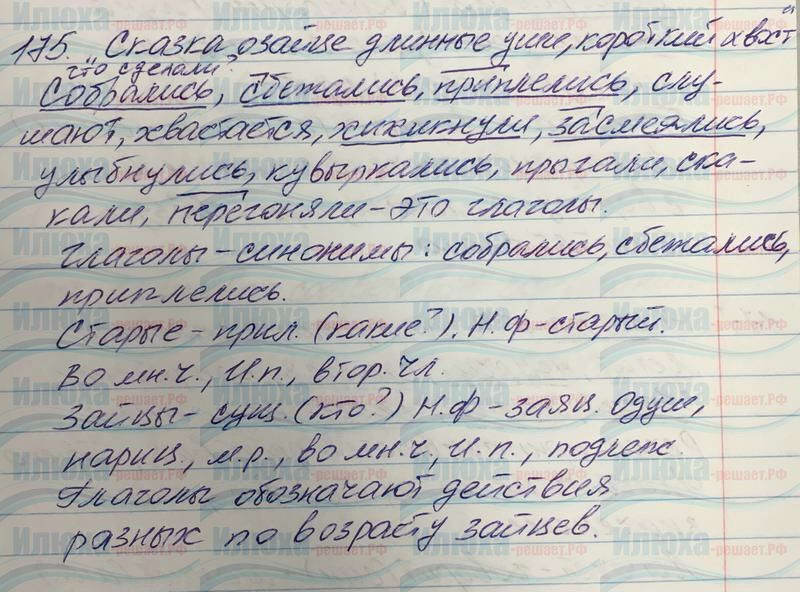 175. „Сказка о зайце длинные уши, короткий хвост
что сделали?
Собрались, сбежались, приплелись, слу-
шают, хвастается, хихикнули, засмеялись,
улыбнулись, кувыркались, прыгали, ска-
кали, перегоняли - это глаголы.
Глаголы - синонимы: собрались, сбежались,
приплелись.
Старые - прил. (какие?). Н.ф - старый.
Во мн.ч., И.п., втор. чл.
Зайцы - сущ. (кто?) Н.ф - заяц. Одуш,
нариц., м.р., во мн.ч., И.п., подлеж.
Глаголы обозначают действия
разных по возрасту зайцев.